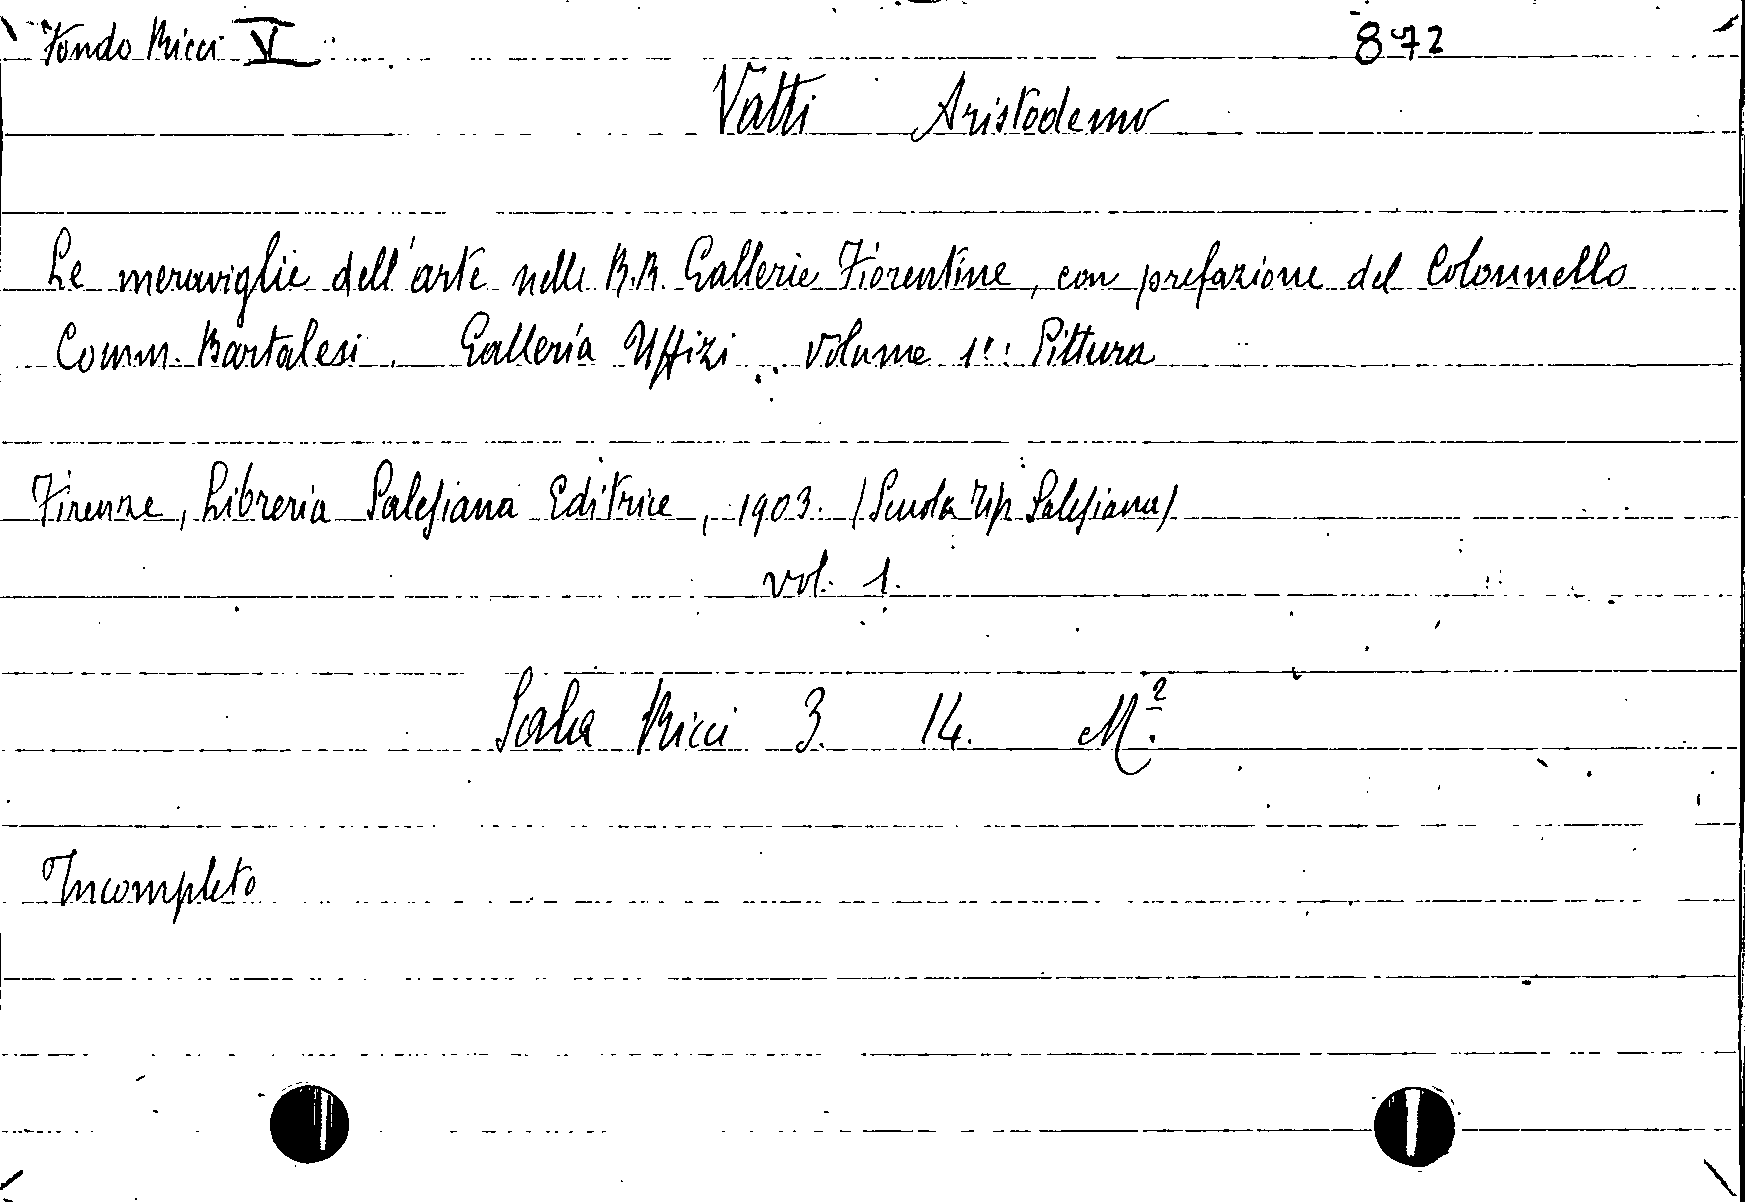 Fondo Ricci V 872
Vatti Aristodemo
Le meraviglie dell'arte nelle R.R. Gallerie Fiorentine, con prefazione del Colonnello
Comm. Bartalesi. Galleria Uffizi. Volume 1º: Pittura
Firenze, Libreria Salesiana Editrice, 1903. (Scuola Tip. Salesiana)
vol. 1.
Sala Ricci 3. 14. M².
Incompleto